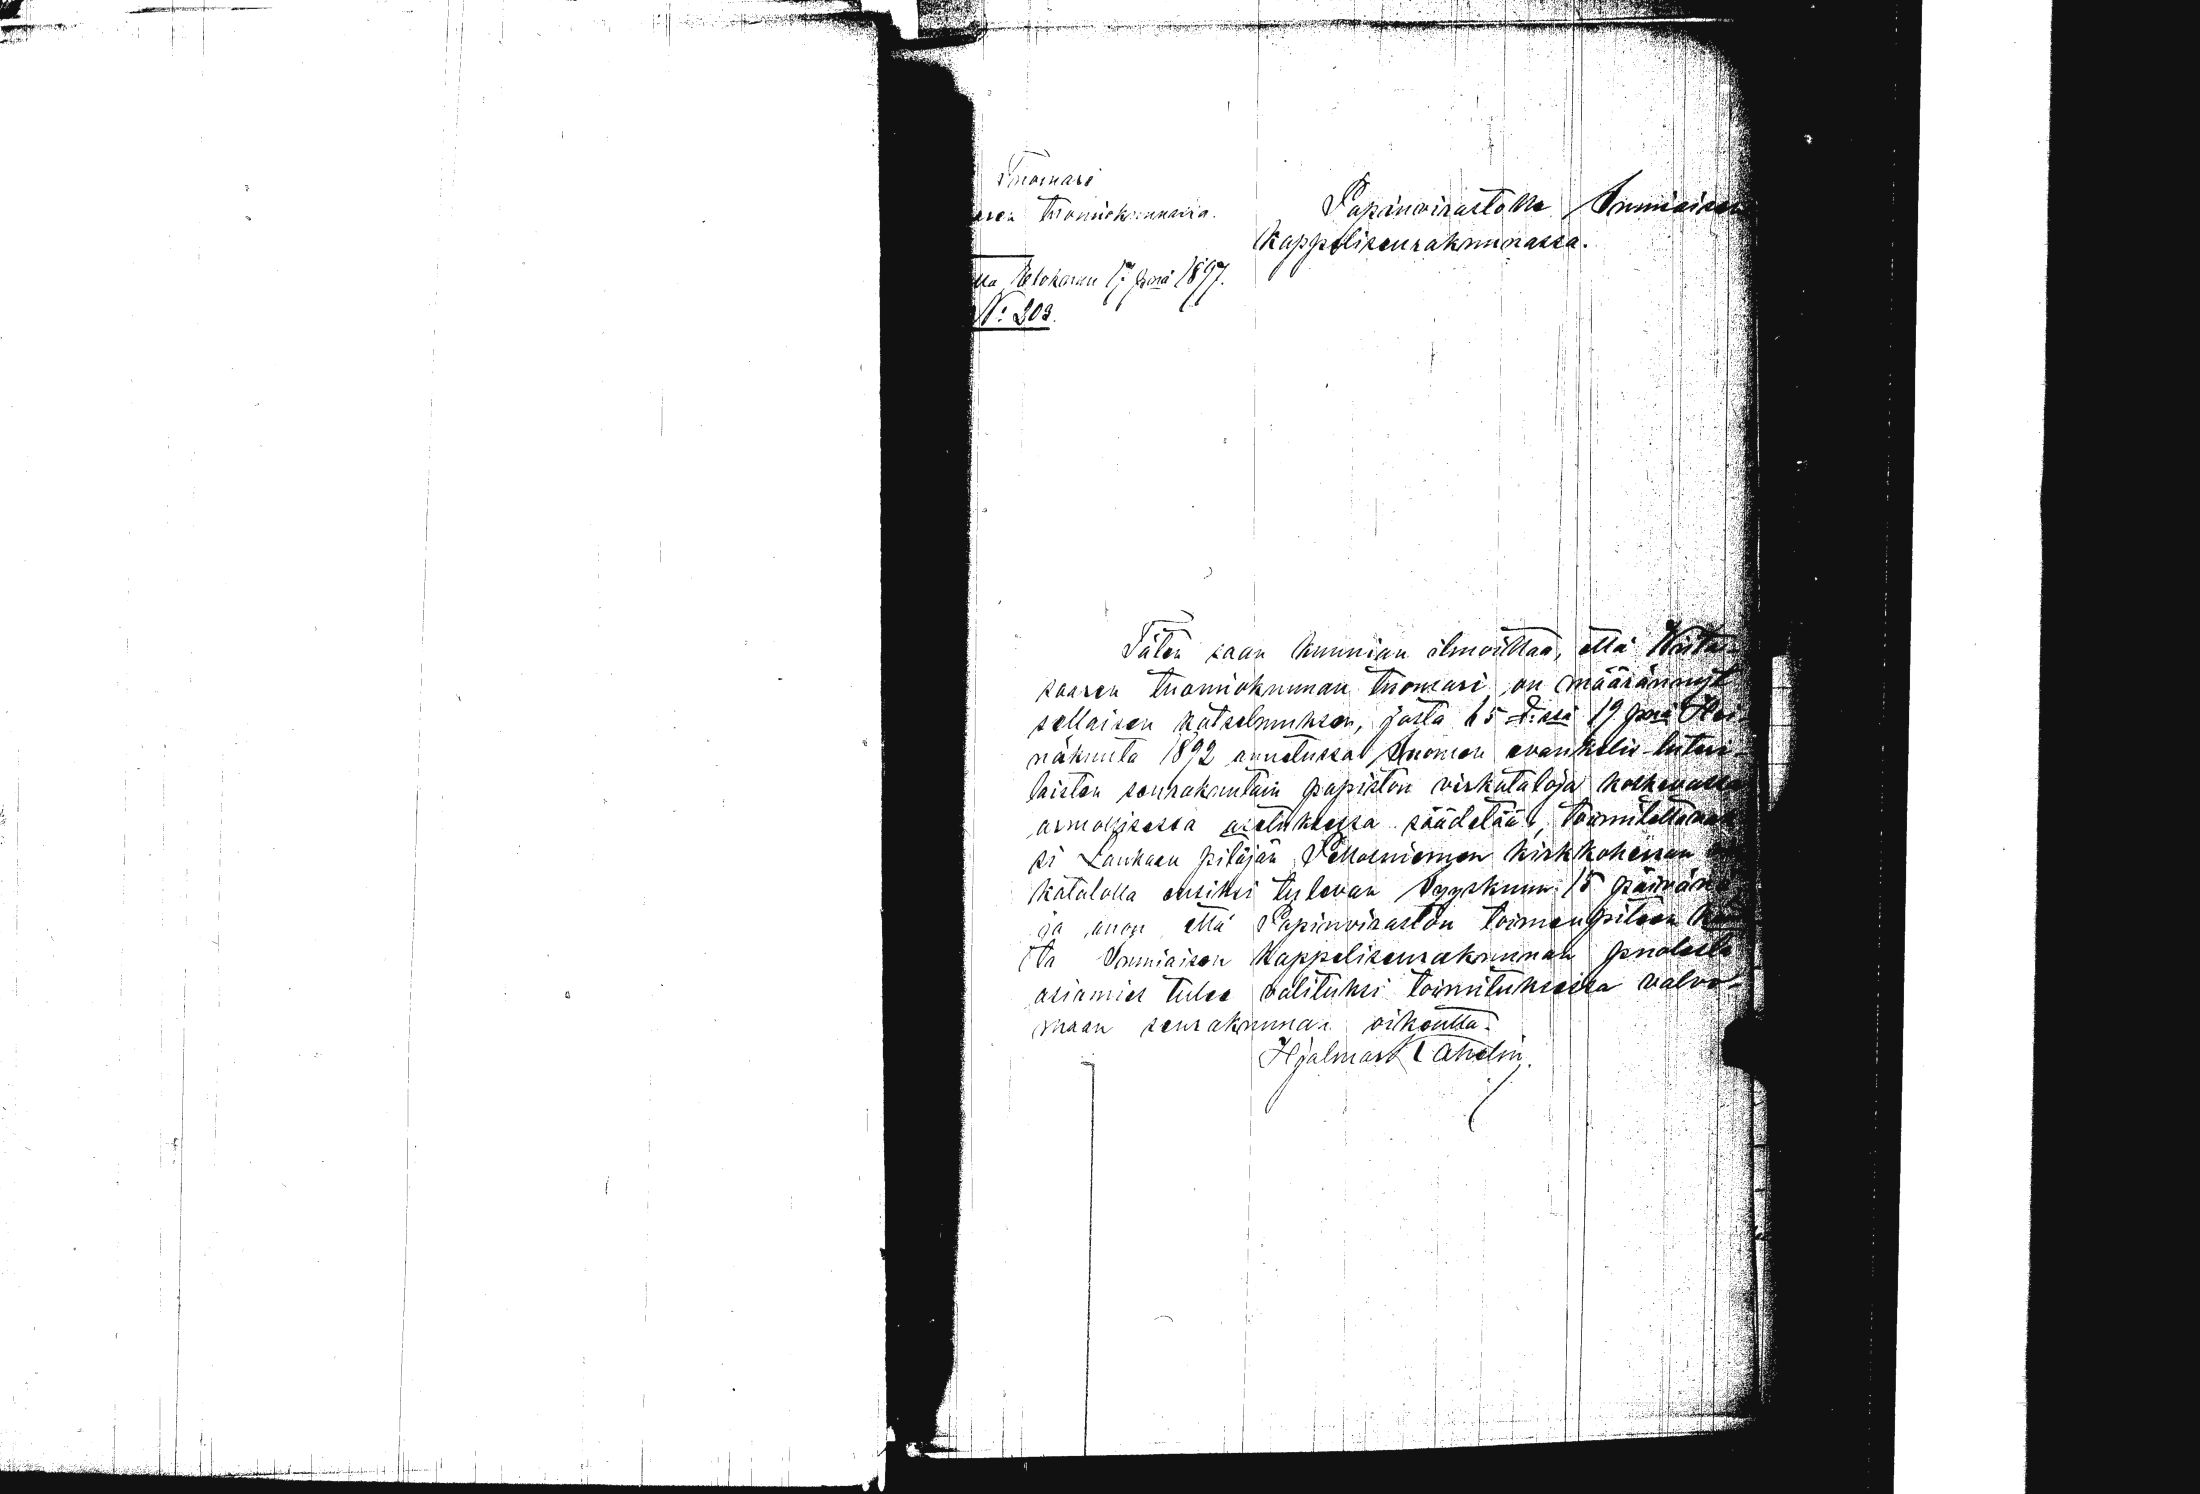 Tuomari
aren tuomiokunnassa.
lla, Elokuun 17 pnä 1897.
N: 203.
Papinvirastolle Sumiaisen
kappeliseurakunnassa.
Täten saan kunnian ilmoittaa, että Viita-
saaren tuomiokunnan tuomari on määrännyt
sellaisen katselmuksen, josta 65 §:ssä 19 pnä Hei-
näkuuta 1892 annetussa Suomen evankelis-luteri-
laisten seurakuntain papiston virkataloja koskevassa
armollisessa asetuksessa säädetään, toimitettavak-
si Laukaan pitäjän Pellosniemen kirkkoherran
katalolla ensiksi tulevan Syyskuun 15 päivänä
ja anon että Papinviraston toimenpiteen
ta Sumiaisen kappeliseurakunnan puolesta
asiamies tulee valituksi toimituksessa valvo-
maan seurakunnan oikeutta.
Hjalmar